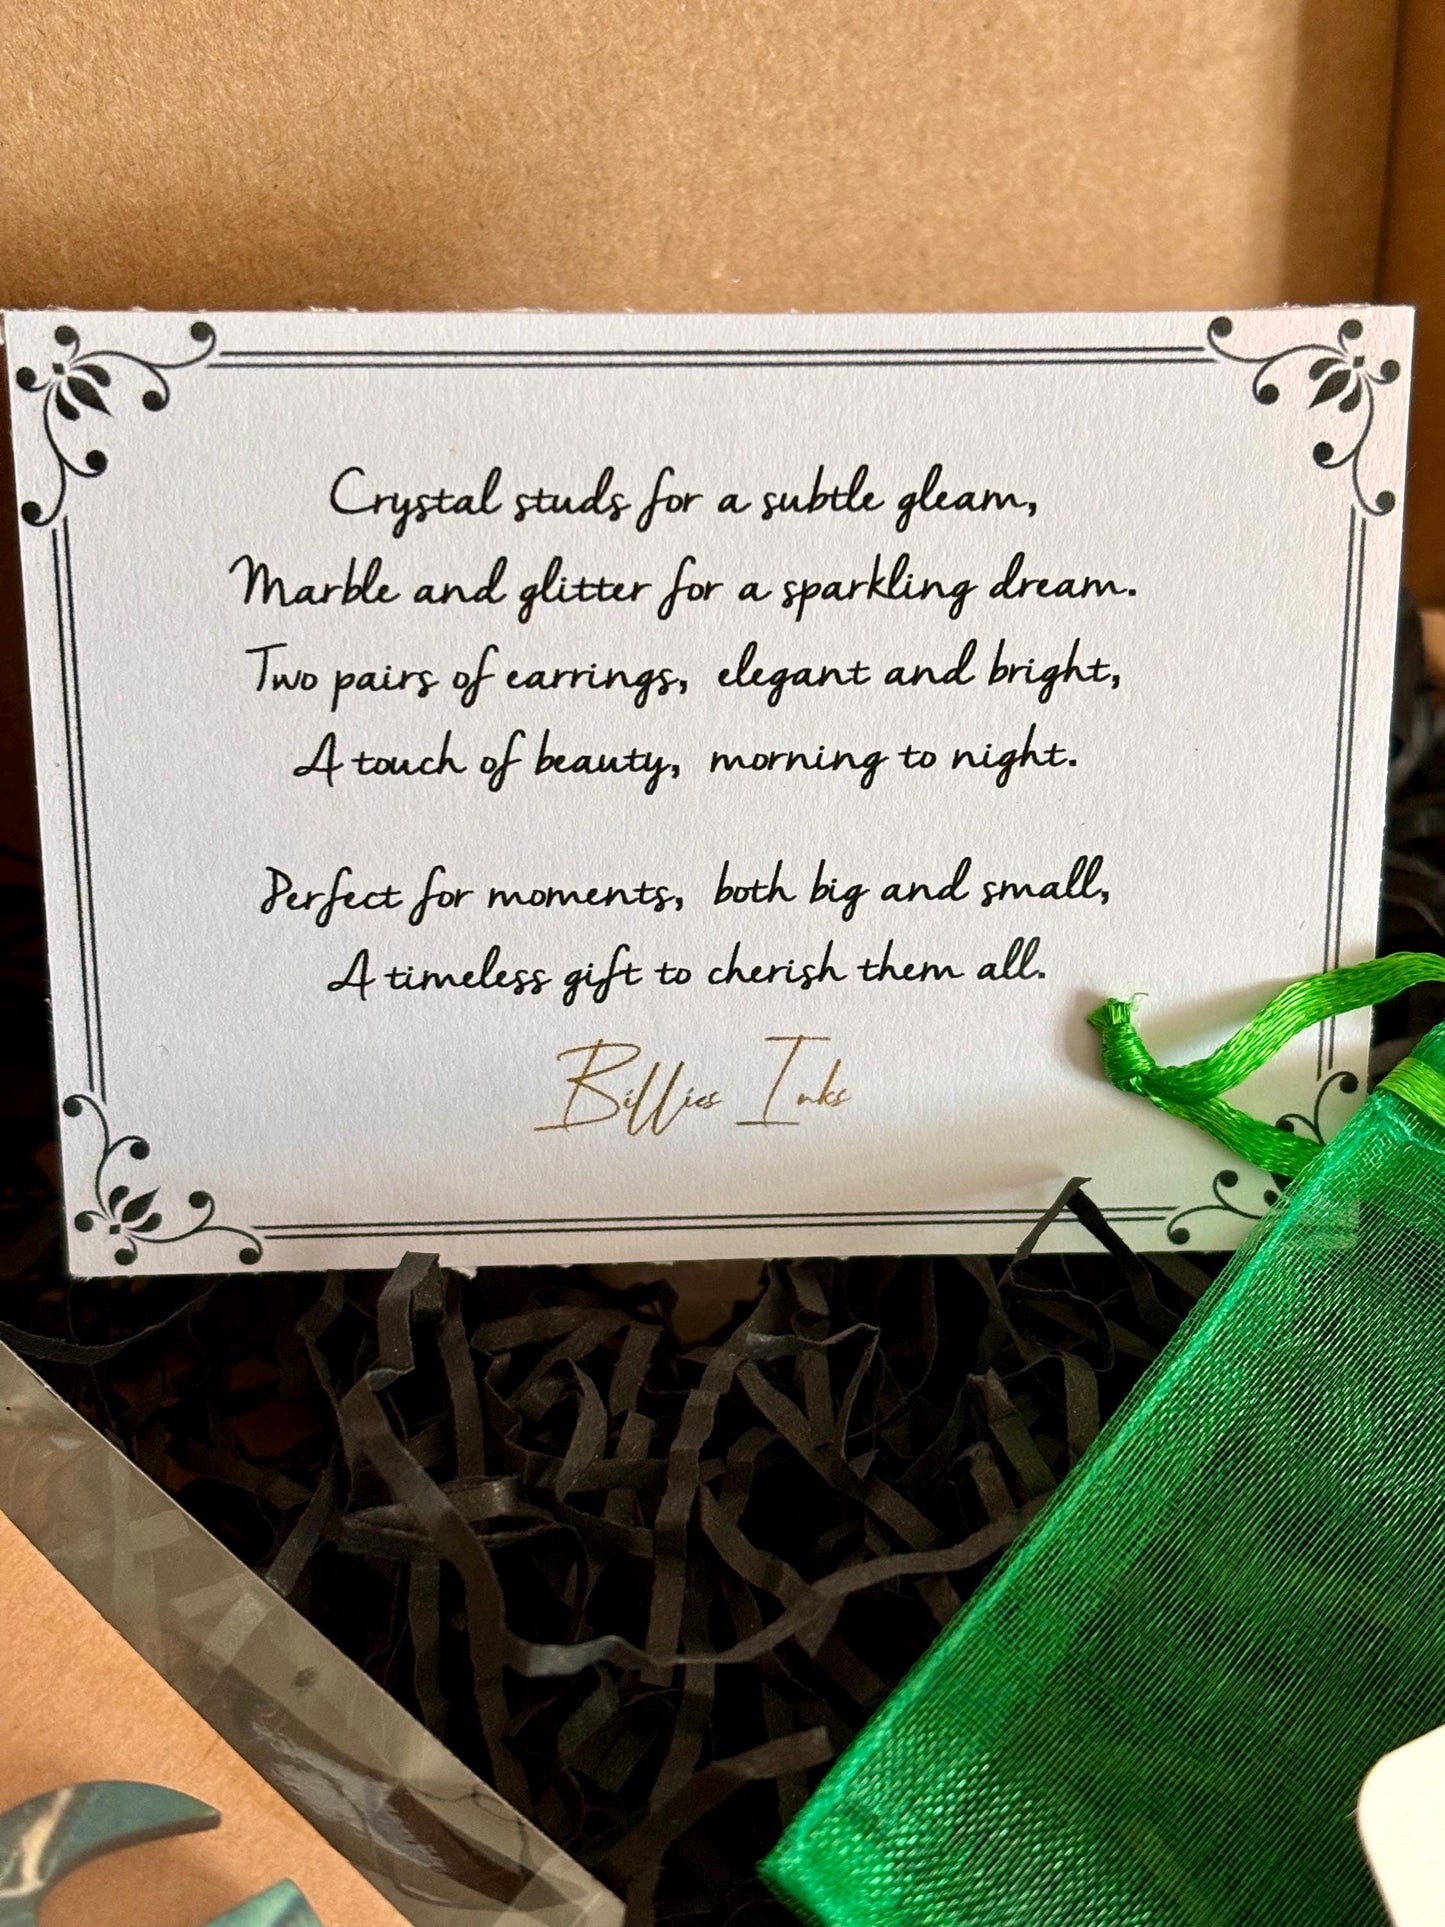 Crystal studs for a subtle gleam,
Marble and glitter for a sparkling dream.
Two pairs of earrings, elegant and bright,
A touch of beauty, morning to night.
Perfect for moments, both big and small,
A timeless gift to cherish them all.
Billies Inks